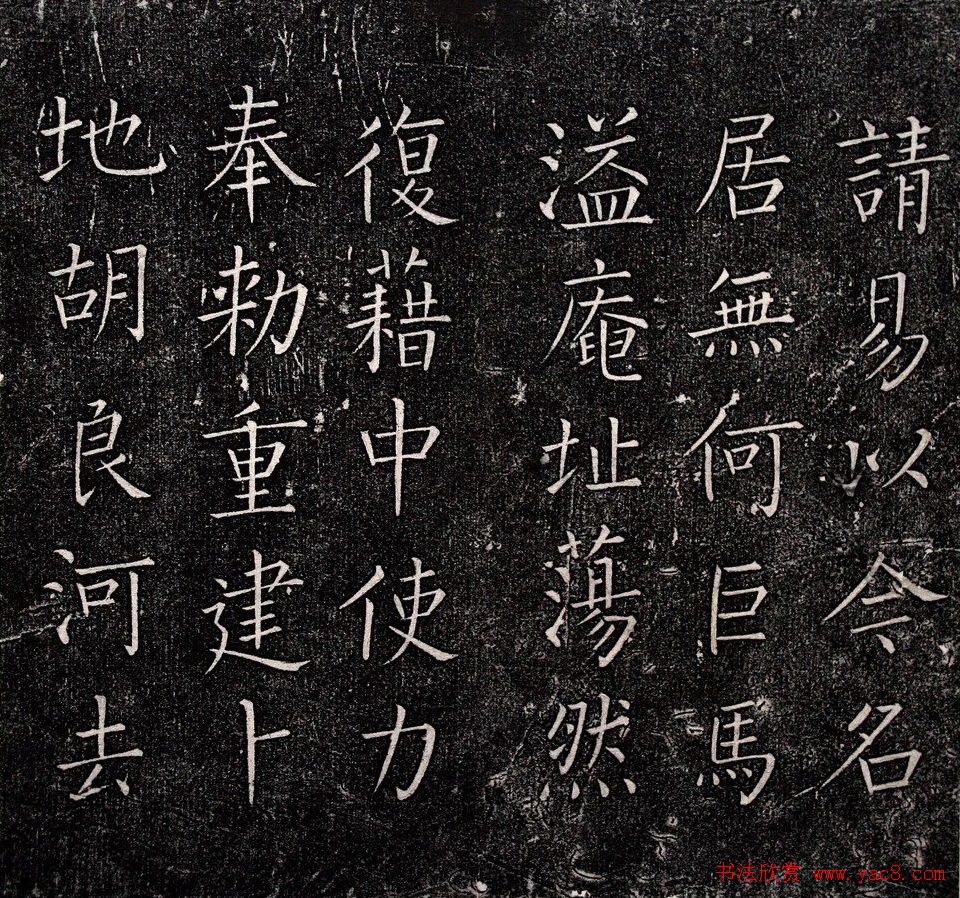 請易以今名
居無何巨馬
溢庵址蕩然
復藉中使力
奉勅重建卜
地胡良河去
书法欣赏 www.yac8.com